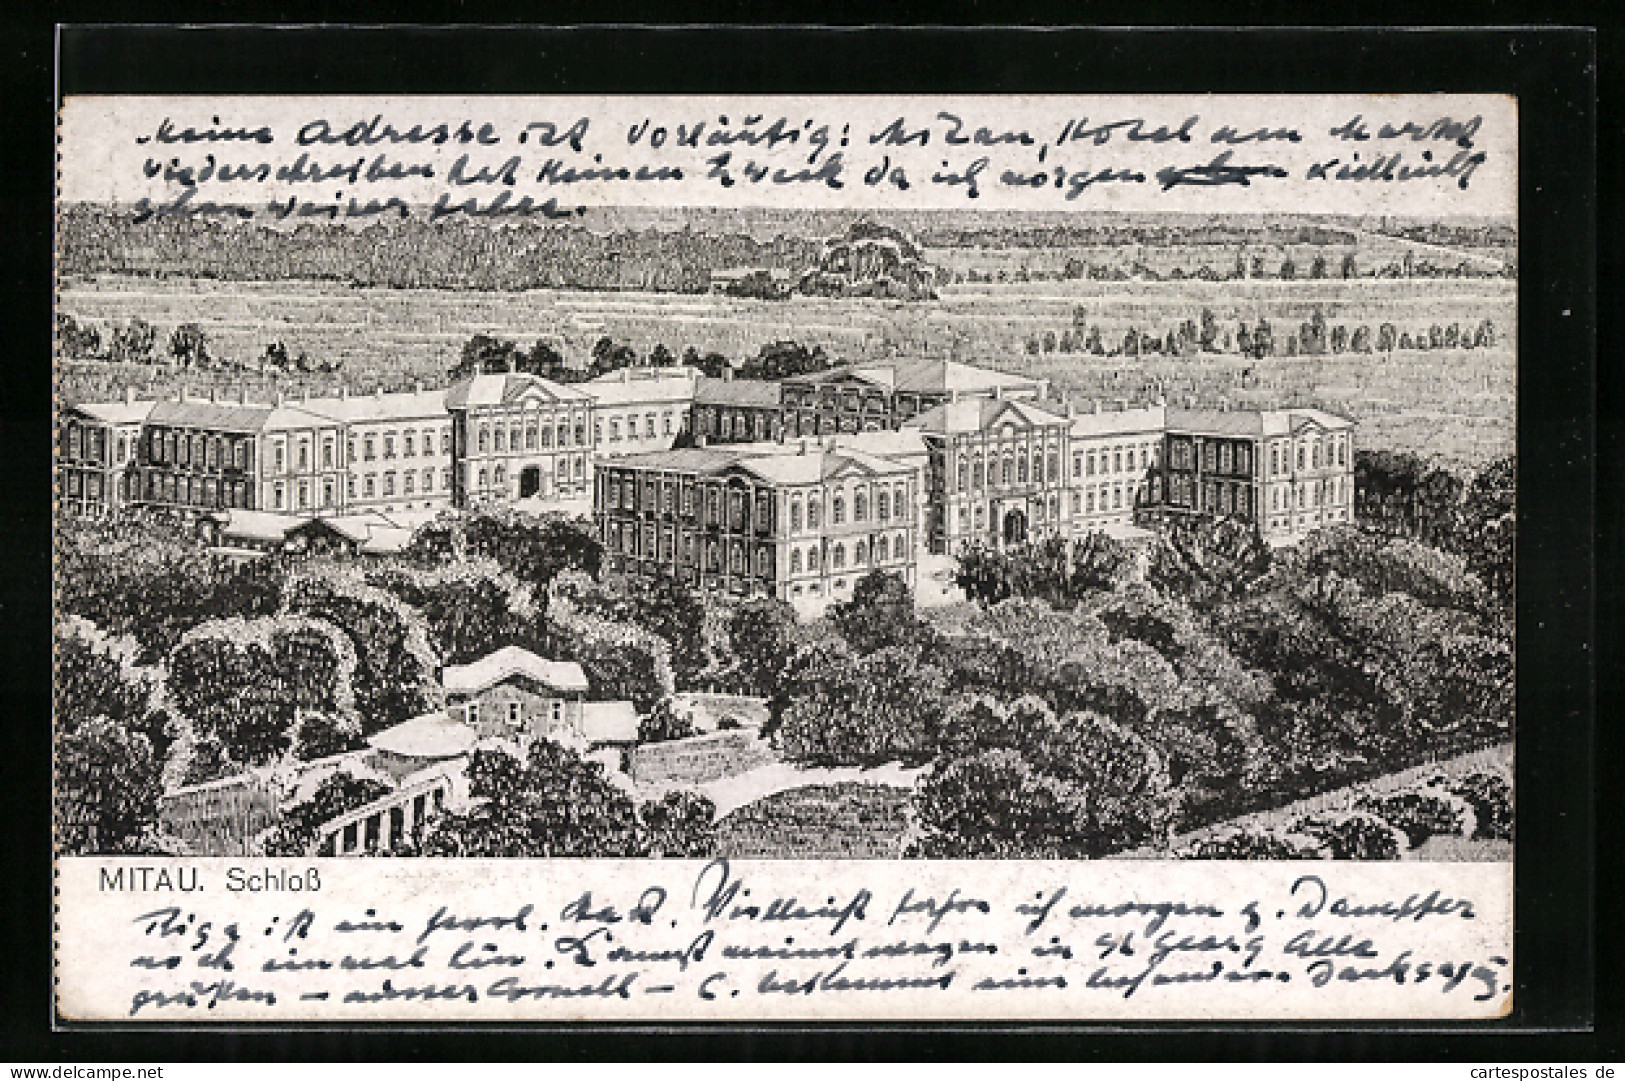 Meine Adresse ist vorläufig: Mitau, Hotel am Markt
wiederschreiben hat keinen Zweck da ich morgen vielleicht
schon weiter fahre.
MITAU. Schloß
Riga ist ein Stadt. Vielleicht fahre ich morgen p. Dampfer
noch einmal hin. Kannst meinetwegen in St Georg Alle
grüßen – ausser Cornell – C. bekommt eine besondere Danksag'g.
cartespostales.de